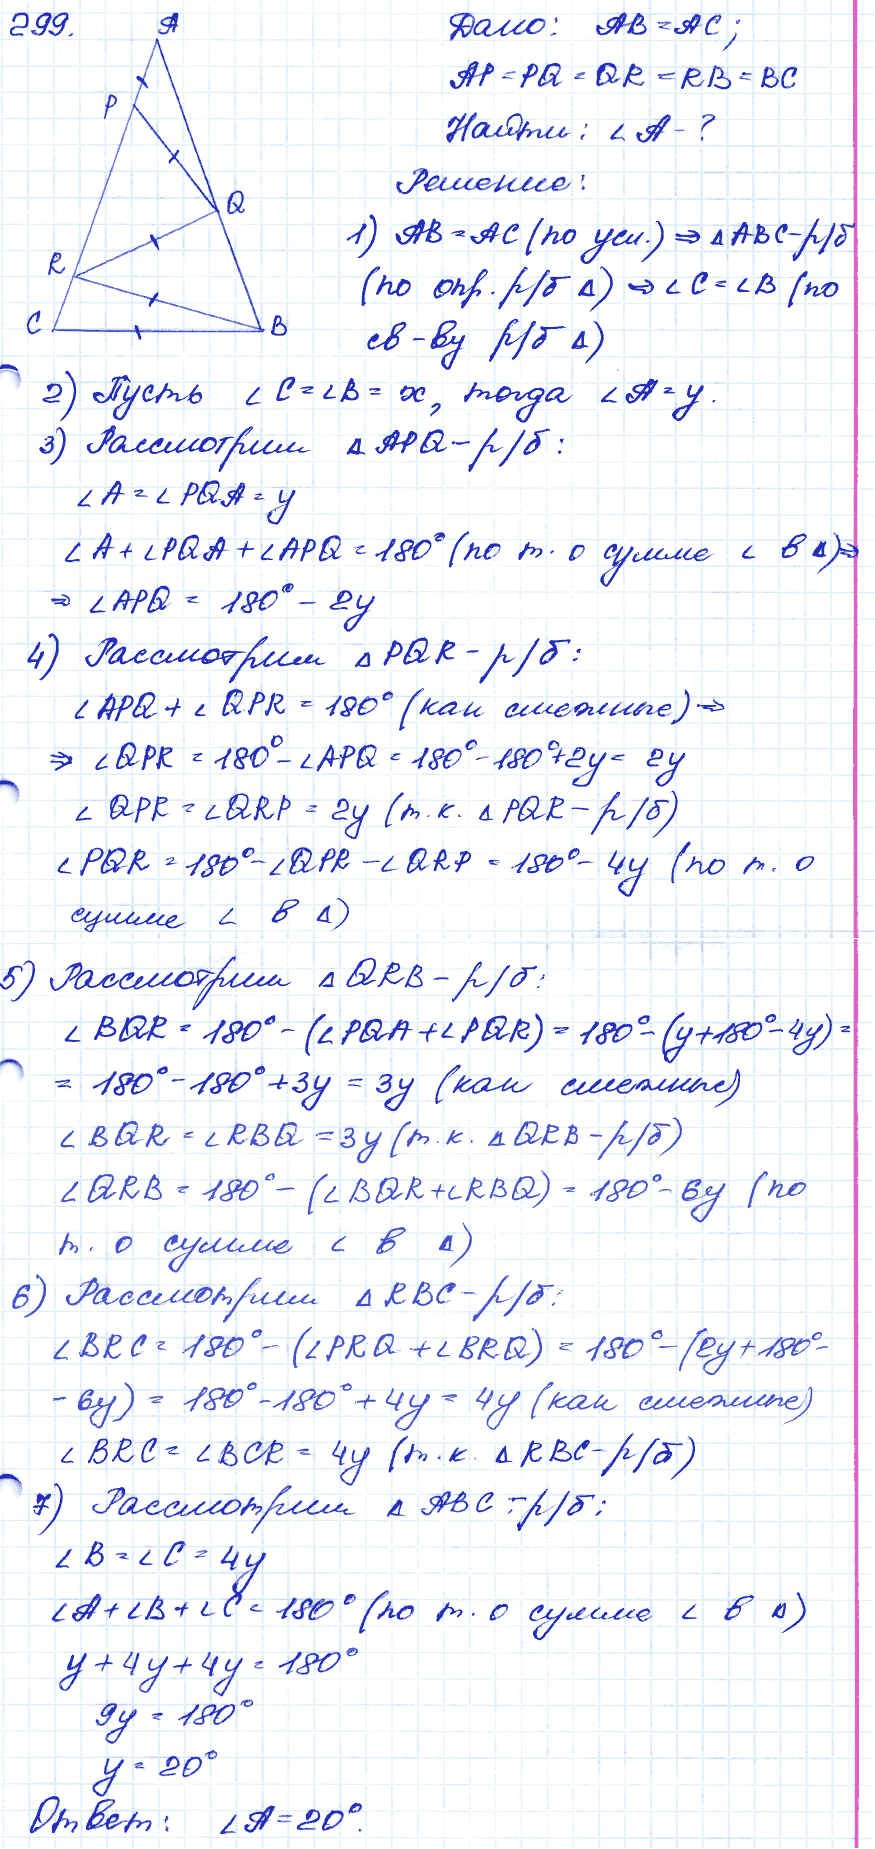 299.
A
P
Q
R
C
B
Дано: AB = AC;
AP = PQ = QR = RB = BC
Найти: ∠A - ?
Решение:
1) AB = AC (по усл.) ⇒ ΔABC - р/б
(по опр. р/б Δ) ⇒ ∠C = ∠B (по
св-ву р/б Δ)
2) Пусть ∠C = ∠B = x, тогда ∠A = y.
3) Рассмотрим ΔAPQ - р/б:
∠A = ∠PQA = y
∠A + ∠PQA + ∠APQ = 180° (по т. о сумме ∠ в Δ) ⇒
⇒ ∠APQ = 180° - 2y
4) Рассмотрим ΔPQR - р/б:
∠APQ + ∠QPR = 180° (как смежные) ⇒
⇒ ∠QPR = 180° - ∠APQ = 180° - 180° + 2y = 2y
∠QPR = ∠QRP = 2y (т.к. ΔPQR - р/б)
∠PQR = 180° - ∠QPR - ∠QRP = 180° - 4y (по т. о
сумме ∠ в Δ)
5) Рассмотрим ΔQRB - р/б:
∠BQR = 180° - (∠PQA + ∠PQR) = 180° - (y + 180° - 4y) =
= 180° - 180° + 3y = 3y (как смежные)
∠BQR = ∠RBQ = 3y (т.к. ΔQRB - р/б)
∠QRB = 180° - (∠BQR + ∠RBQ) = 180° - 6y (по
т. о сумме ∠ в Δ)
6) Рассмотрим ΔRBC - р/б:
∠BRC = 180° - (∠PRQ + ∠BRQ) = 180° - (2y + 180° -
- 6y) = 180° - 180° + 4y = 4y (как смежные)
∠BRC = ∠BCR = 4y (т.к. ΔRBC - р/б)
7) Рассмотрим ΔABC - р/б:
∠B = ∠C = 4y
∠A + ∠B + ∠C = 180° (по т. о сумме ∠ в Δ)
y + 4y + 4y = 180°
9y = 180°
y = 20°
Ответ: ∠A = 20°.